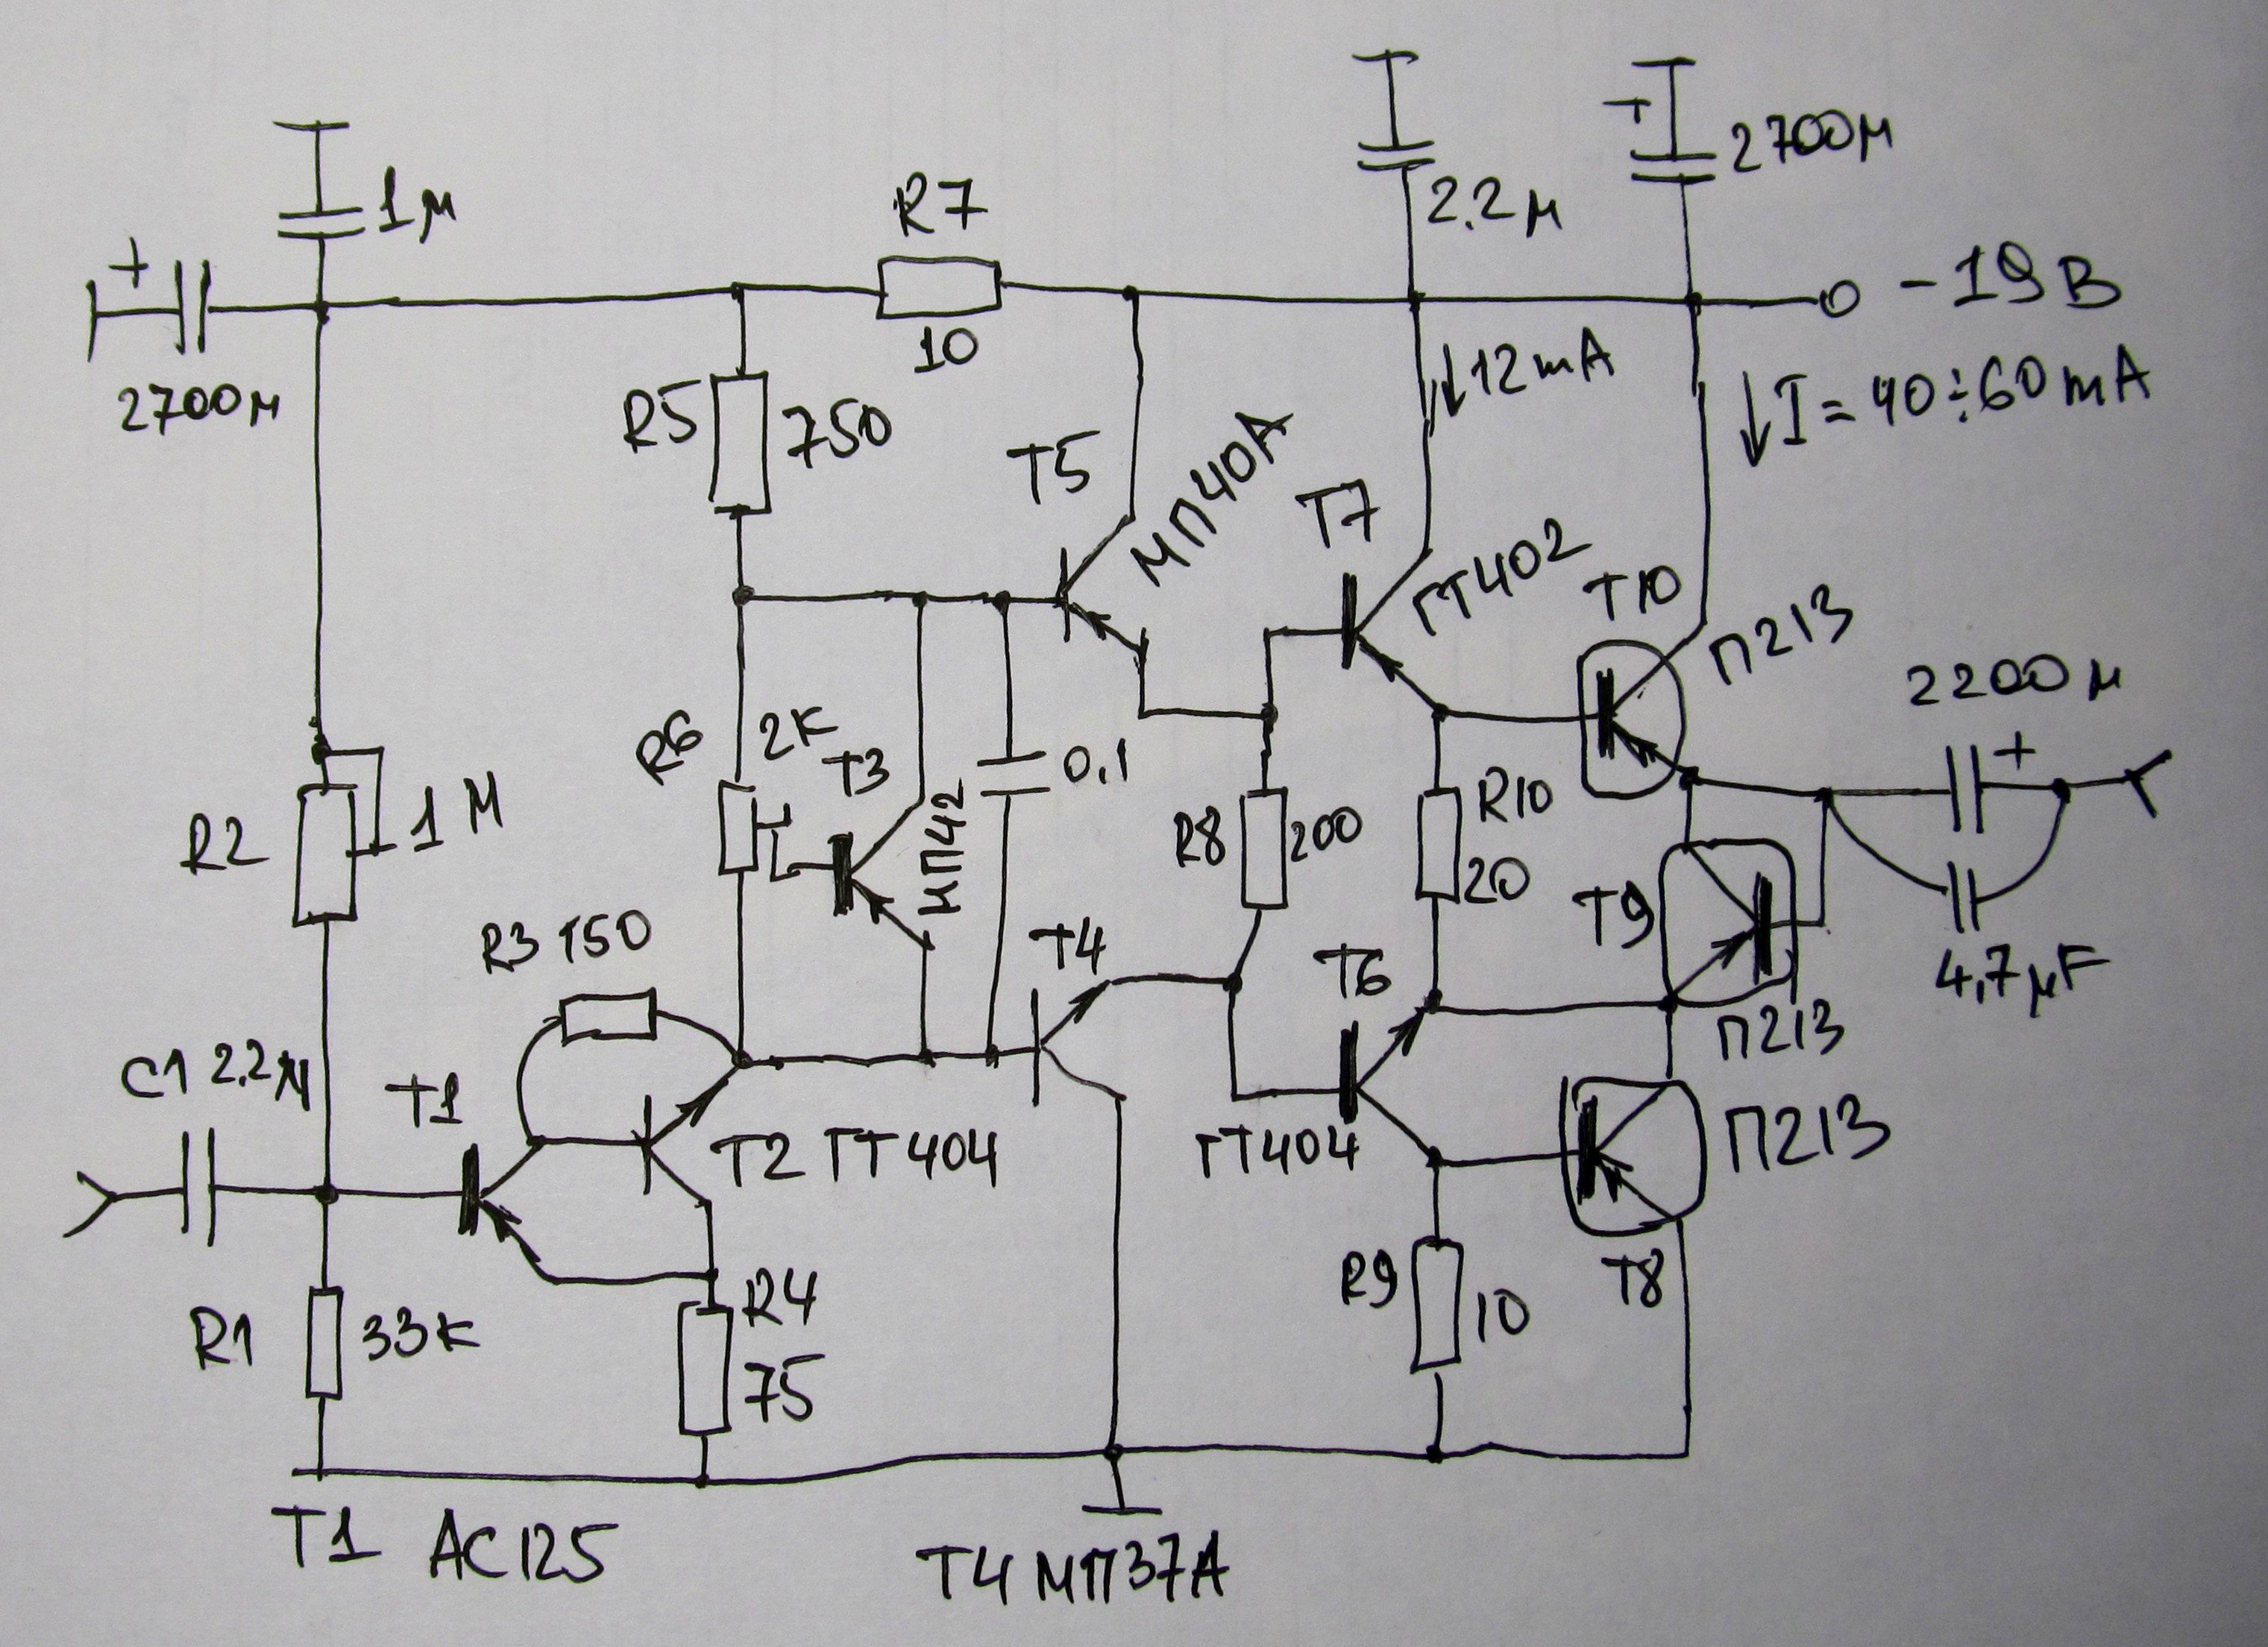 +
2700м
1м
R7
10
2.2м
+
2700м
-19В
↓12mA
↓I=40÷60mA
R5
750
T5
МП40А
T7
ГТ402
T10
П213
2200м
+
R6
2K
T3
МП42
0,1
R2
1M
R8
200
R10
20
T9
П213
4,7μF
R3 150
T4
T6
C1 2.2м
T1
T2 ГТ404
ГТ404
П213
T8
R1
33K
R4
75
R9
10
T1 AC125
T4 МП37А